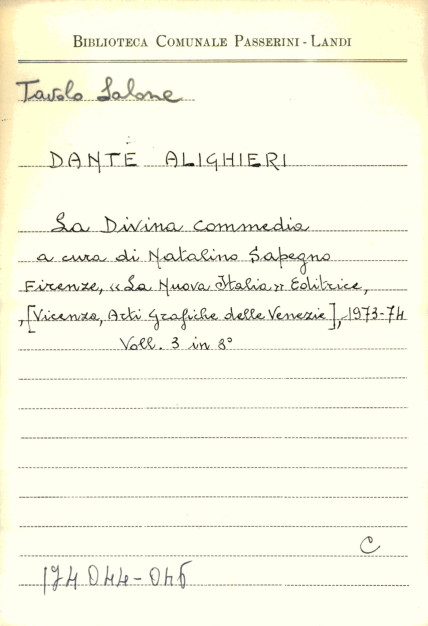 BIBLIOTECA COMUNALE PASSERINI - LANDI
Tavolo Salone
DANTE ALIGHIERI
La Divina Commedia
a cura di Natalino Sapegno
Firenze, «La Nuova Italia» Editrice,
,[Vicenza, Arti Grafiche delle Venezie], 1973-74
Voll. 3 in 8°
C
174 044-046